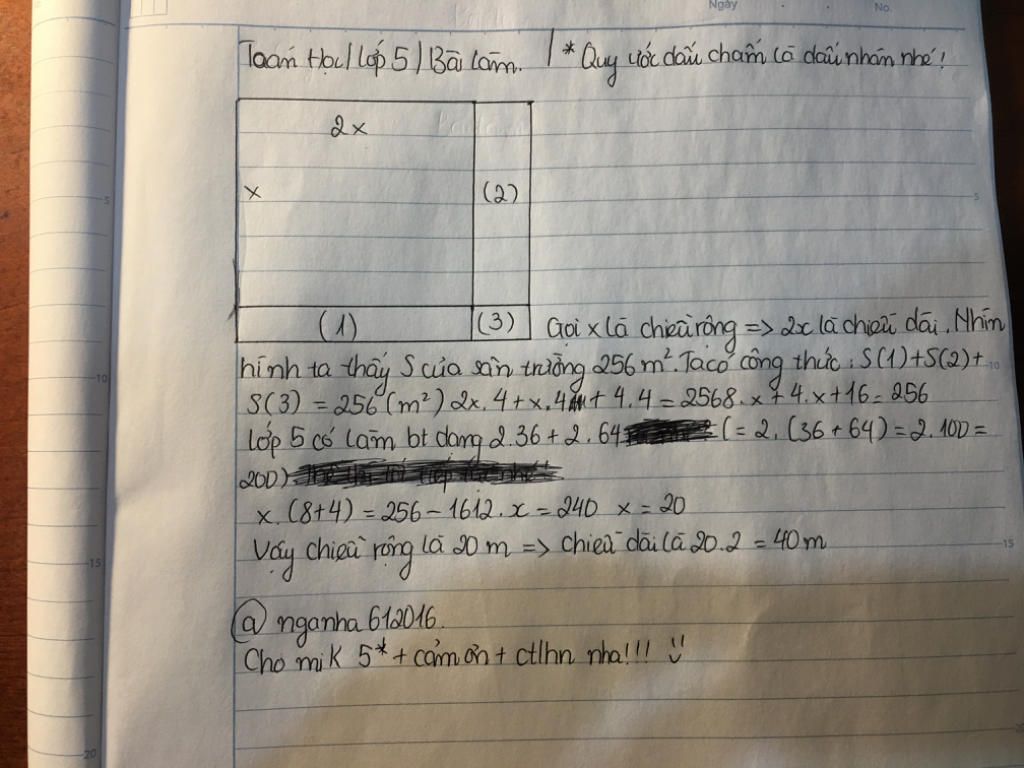 Ngày . . No.
Toán Học | Lớp 5 | Bài làm. | * Quy ước dấu chấm là dấu nhân nhé!
2x
x
(2)
(1)
(3)
Gọi x là chiều rộng => 2x là chiều dài. Nhìn
hình ta thấy S của sân trường 256 m². Ta có công thức: S(1)+S(2)+
S(3) = 256 (m²) 2x.4 + x.4 + 4.4 = 2568.x + 4.x + 16 = 256
Lớp 5 có làm bt dạng 2.36 + 2.64 (= 2.(36 + 64) = 2.100 =
200)
x.(8+4) = 256 – 1612.x = 240 x = 20
Vậy chiều rộng là 20 m => chiều dài là 20.2 = 40 m
@ nganha612016.
Cho mik 5* + cảm ơn + ctlhn nha!!!
5
5
10
10
15
15
20